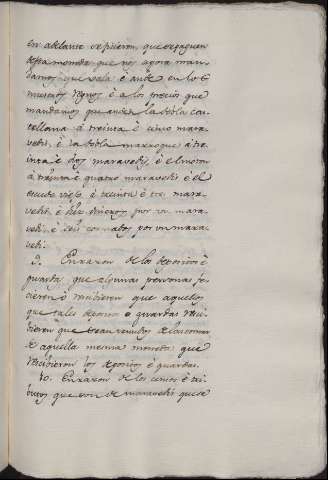 en adelante se ficieren, que se paguen
desta moneda que nos agora man-
damos que vala é ande en los
nuestros Regnos é a los precios que
mandamos que anden la dobla cas-
tellana á treinta é cinco mara-
vedis, é la dobla marroquí á tre-
inta é dos maravedis, é el moton
á treinta é quatro maravedis é el
escudo viejo á treinta é tres mara-
vedis, é diez dineros por un mara-
vedi, é seis cornados por un marave-
vedi.
9. En razon de los deposicos é
guardas que algunas personas fi-
cieron é recibieron que aquellos
que tales deposicos é guardas reci-
bieron que sean tenudos de los tornar
de aquella mesma moneda que
recibieron los deposicos é guardas.
10. En razon de los censos é tri-
butos que son de maravedis que se